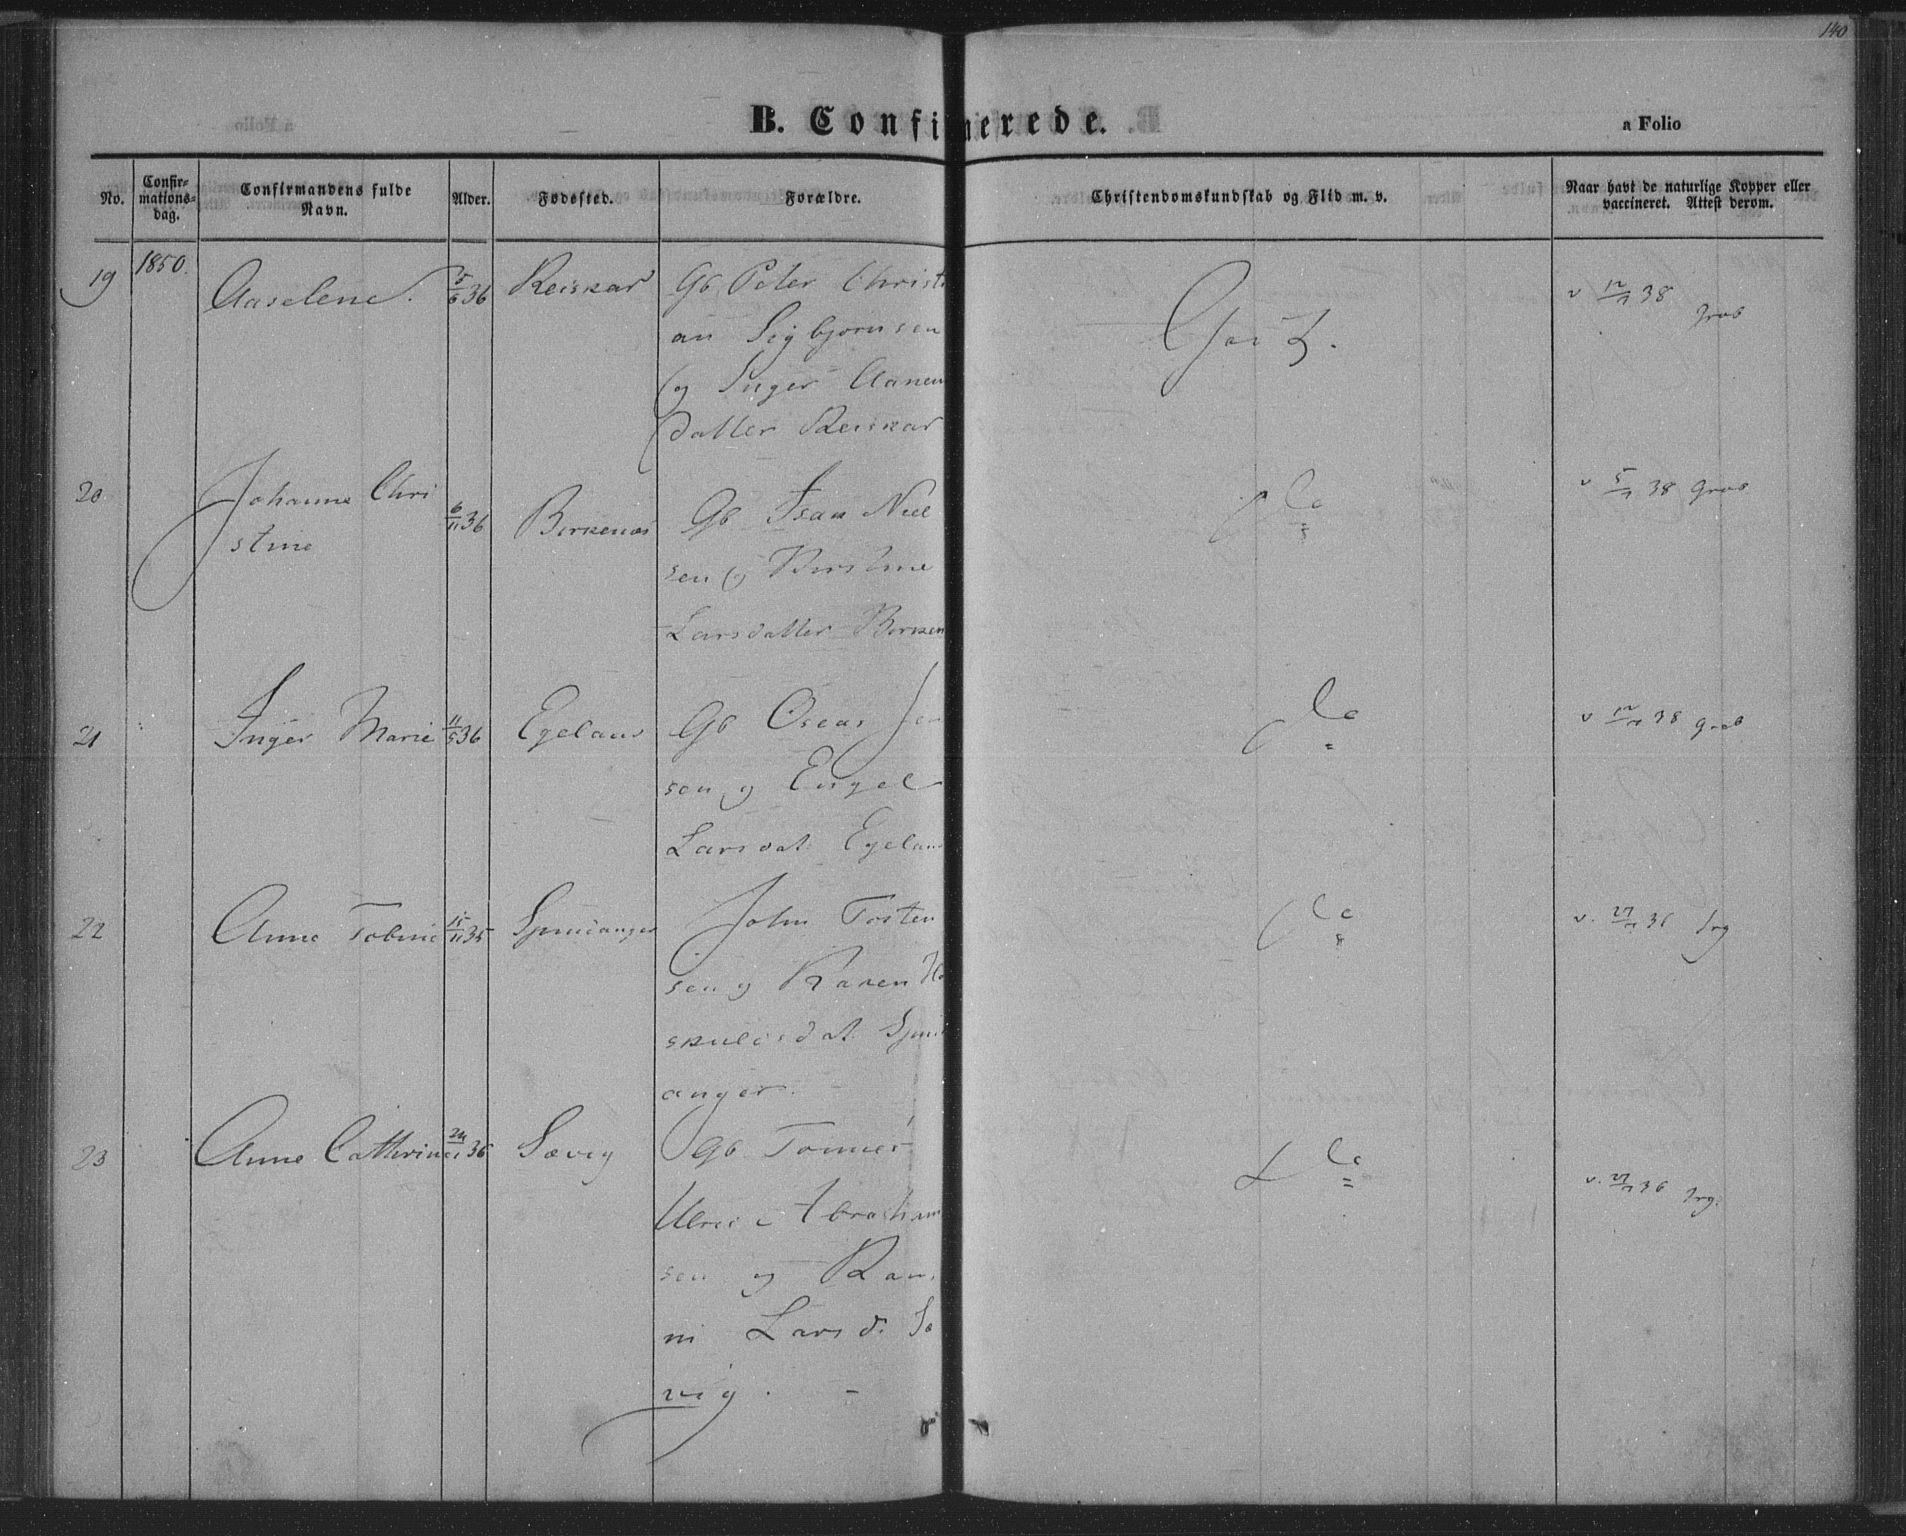 140
B. Confirmerede.
a Folio
No.
Confir-
mations-
dag.
Confirmandens fulde
Navn.
Alder.
Fødested.
Forældre.
Christendomskundskab og Flid m. v.
Naar havt de naturlige Kopper eller
vaccineret. Attest derom.
19 1850. Aaselene. 5/6 36 Reiskar Gb Peter Christi
an Sigbjørnsen
og Inger Aanen
datter Reiskar
God.
v 12/7 38 Grøb
20 Johanne Chri
stine
6/11 36 Birkenæs Gb Isak Niel
sen og Kirstine
Larsdatter Birken
v 5/7 38 Grøb
21 Inger Marie 11/5 36 Egeland Gb Oscar Jen
sen og Engel
Larsdat. Egeland
v 12/7 38 Grøb
22 Anne Tobine 15/11 35 John Tosten
sen og Karen
skuldsdat.
anger.
v. 27/7 36
23 Anne Catherine 36 Sævig Gb Tønnes
Ulric Abraham
sen og Ran
ni Larsd. Sæ
vig.
v. 27/7 36